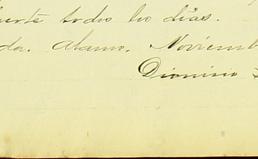 todos los días.
da. Alamo. Noviemb
Dionisio